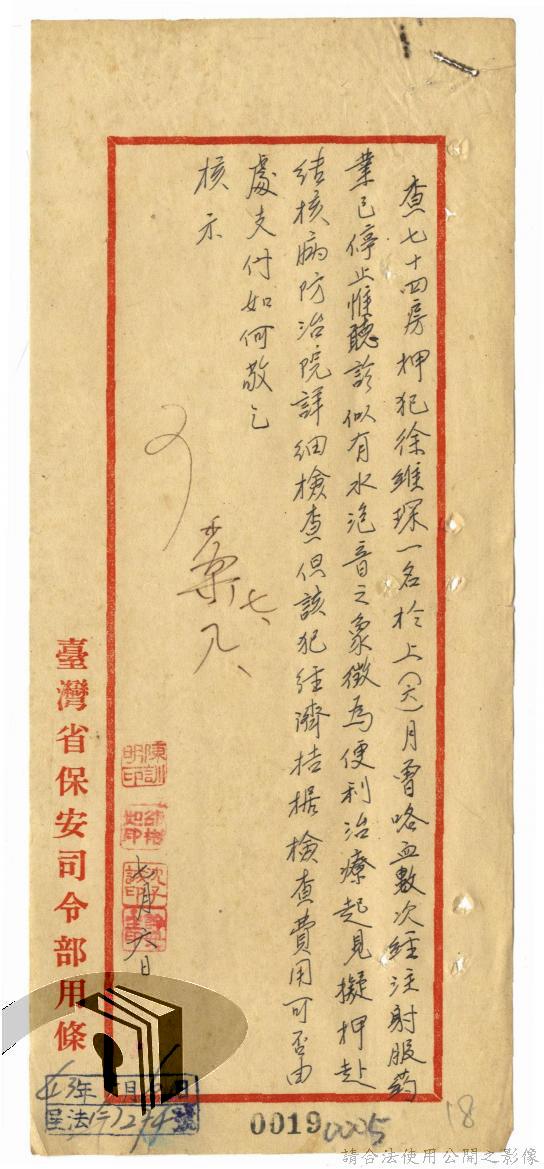 查七十四房押犯徐維琛一名於上(六)月曾咯血數次經注射服药
業已停止惟聽診似有水泡音之象徵為便利治療起見擬押赴
結核病防治院詳細檢查但該犯經濟拮据檢查費用可否由
處支付如何敬乞
核示
可
七、八、
陳訓明印
七月六日
臺灣省保安司令部用條
43年
0019
0005
18
請合法使用公開之影像